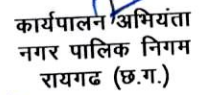 कार्यपालन अभियंता
नगर पालिक निगम
रायगढ (छ.ग.)